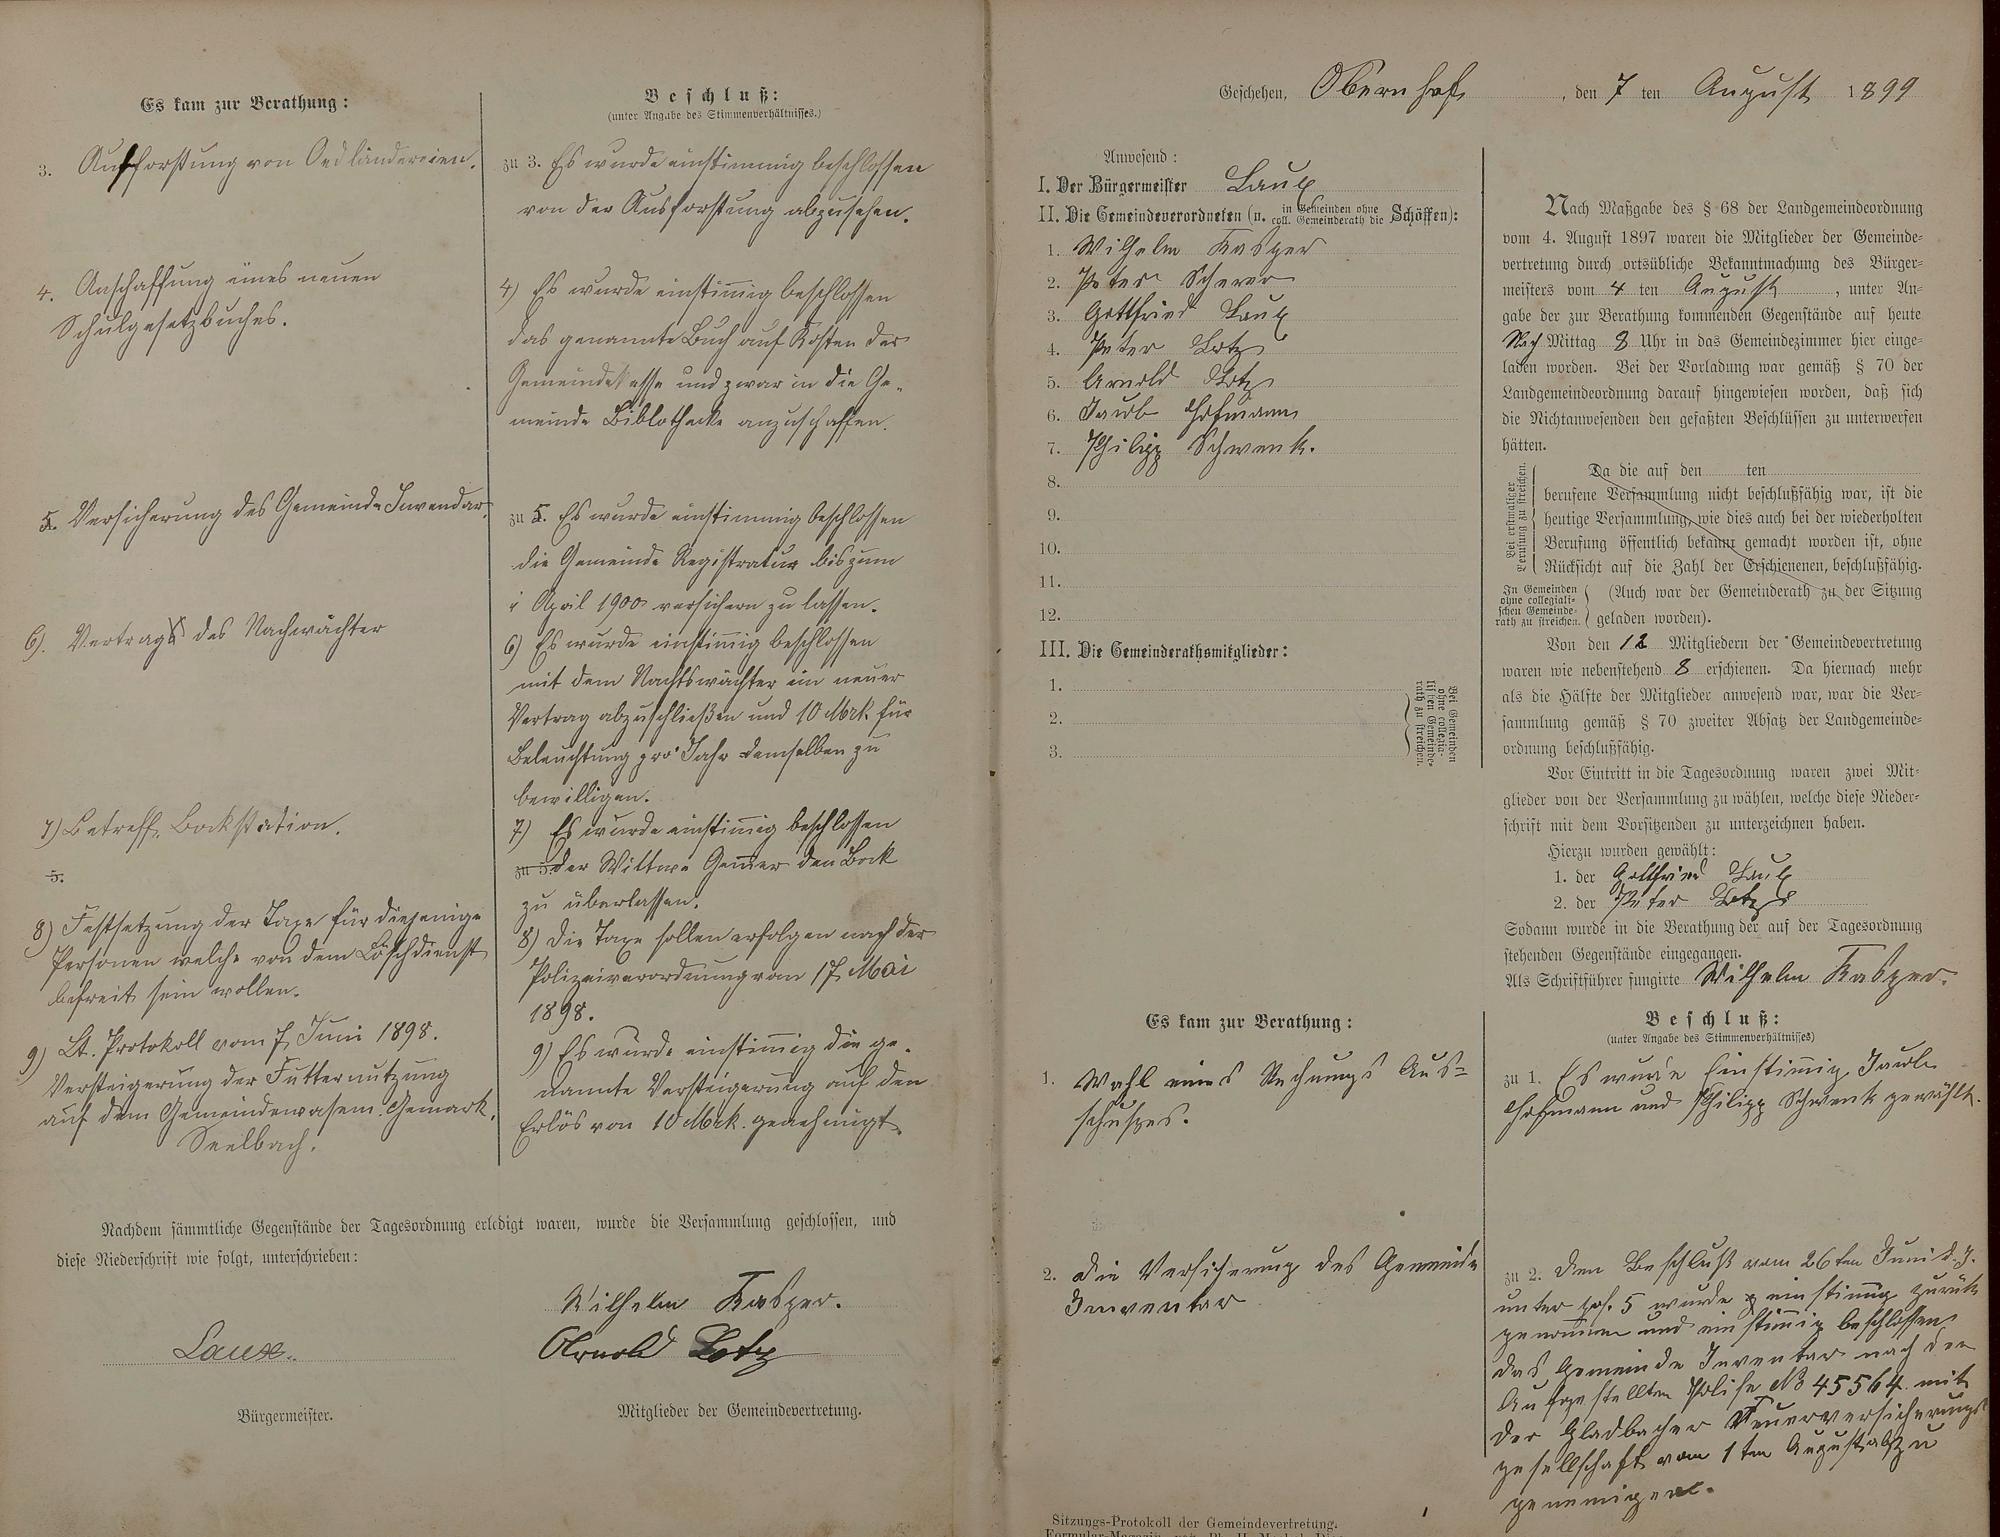 Es kam zur Berathung:
Beschluß:
(unter Angabe des Stimmenverhältnisses.)
3. Aufforstung von Oedländereien.
zu 3. Es wurde einstimmig beschlossen
von der Ausforstung abzusehen.
4. Anschaffung eines neuen
Schulgesetzbuches.
4) Es wurde einstimig beschlossen
das genannte Buch auf Kosten der
Gemeindekasse und zwar in die Ge-
meinde Bibliotheke anzuschaffen.
5. Versicherung des Gemeinde Invendar.
zu 5. Es wurde einstimmig beschlossen
die Gemeinde Registratur bis zum
1 April 1900 versichern zu lassen.
6). Vertrags des Nachwächter
6) Es wurde einstimig beschlossen
mit dem Nachtswächter ein neuer
Vertrag abzuschließen und 10 Mrk. für
Beleuchtung pro Jahr demselben zu
bewilligen.
7) Betreff. Bockstation.
5.
7) Es wurde einstimig beschlossen
zu 5. der Wittwe Gemer den Bock
zu überlassen.
8) Festsetzung der Taxe für diejenige
Personen welche von dem Löschdienst
befreit sein wollen.
8) Die Taxe sollen erfolgen nach der
Polizeiverordnung vom 17 Mai
1898.
9) Lt. Protokoll vom 7 Juni 1898.
Versteigerung der Futternutzung
auf dem Gemeindewasem Gemark.
Seelbach.
9) Es wurde einstimig die ge-
nannte Versteigerung auf den
Erlös von 10 Mrk. genehmigt.
Nachdem sämmtliche Gegenstände der Tagesordnung erledigt waren, wurde die Versammlung geschlossen, und
diese Niederschrift wie folgt, unterschrieben:
Wilhelm Kasper.
Laux.
Arnold Lotz
Bürgermeister.
Mitglieder der Gemeindevertretung.
Geschehen, Obernhof, den 7 ten August 1899
Anwesend:
I. Der Bürgermeister Laux
II. Die Gemeindeverordneten (u. in Gemeinden ohne coll. Gemeinderath die Schöffen):
1. Wilhelm Kasper
2. Peter Scherer
3. Gottfried Laux
4. Peter Lotz
5. Arnold Lotz
6. Jacob Hofmann
7. Philipp Schwenk.
8.
9.
10.
11.
12.
III. Die Gemeinderathsmitglieder:
1.
2.
3.
Bei Gemeinden
ohne collegia-
lischen Gemeinde-
rath zu streichen.
Nach Maßgabe des § 68 der Landgemeindeordnung
vom 4. August 1897 waren die Mitglieder der Gemeinde-
vertretung durch ortsübliche Bekanntmachung des Bürger-
meisters vom 4 ten August, unter An-
gabe der zur Berathung kommenden Gegenstände auf heute
Nach Mittag 8 Uhr in das Gemeindezimmer hier einge-
laden worden. Bei der Vorladung war gemäß § 70 der
Landgemeindeordnung darauf hingewiesen worden, daß sich
die Nichtanwesenden den gefaßten Beschlüssen zu unterwerfen
hätten.
Bei erstmaliger
Berufung zu streichen.
Da die auf den ten
berufene Versammlung nicht beschlußfähig war, ist die
heutige Versammlung, wie dies auch bei der wiederholten
Berufung öffentlich bekannt gemacht worden ist, ohne
Rücksicht auf die Zahl der Erschienenen, beschlußfähig.
In Gemeinden
ohne collegiali-
schen Gemeinde-
rath zu streichen.
(Auch war der Gemeinderath zu der Sitzung
geladen worden).
Von den 12 Mitgliedern der Gemeindevertretung
waren wie nebenstehend 8 erschienen. Da hiernach mehr
als die Hälfte der Mitglieder anwesend war, war die Ver-
sammlung gemäß § 70 zweiter Absatz der Landgemeinde-
ordnung beschlußfähig.
Vor Eintritt in die Tagesordnung waren zwei Mit-
glieder von der Versammlung zu wählen, welche diese Nieder-
schrift mit dem Vorsitzenden zu unterzeichnen haben.
Hierzu wurden gewählt:
1. der Gottfried Laux
2. der Peter Lotz
Sodann wurde in die Berathung der auf der Tagesordnung
stehenden Gegenstände eingegangen.
Als Schriftführer fungirte Wilhelm Kasper.
Es kam zur Berathung:
Beschluß:
(unter Angabe des Stimmenverhältnisses)
1. Wahl eines Rechnungs Aus-
schusses.
zu 1. Es wurde Einstimig Jacob
Hofmann und Philipp Schwenk gewählt.
2. die Versicherung des Gemeinde
Inventar
zu 2. Den Beschluß vom 26ten Juni d. J.
unter pos. 5 wurde einstimig zurük
genommen und einstimig beschlossen
das Gemeinde Inventar nach der
Aufgestellten Polise No 45564 mit
der Gladbacher Feuerversicherungs
gesellschaft vom 1ten August ab zu
genemigen.
Sitzungs-Protokoll der Gemeindevertretung.